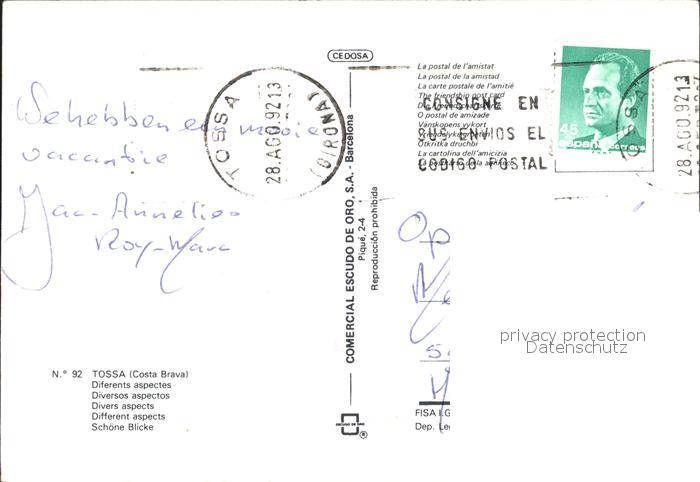 We hebben een mooie
vacantie
Jac-Annelies
Roy-Marc
N.° 92 TOSSA (Costa Brava)
Diferents aspectes
Diversos aspectos
Divers aspects
Different aspects
Schöne Blicke
TOSSA
28.AGO.92 13
(GIRONA)
CEDOSA
COMERCIAL ESCUDO DE ORO, S.A. - Barcelona
Piqué, 2-4
Reproducción prohibida
ESCUDO DE ORO
®
La postal de l'amistat
La postal de la amistad
La carte postale de l'amitié
The friendship post card
O postal de amizade
Vänskapens vykort
Otkritka druchbi
La cartolina dell'amicizia
CONSIGNE EN
SUS ENVIOS EL
CODIGO POSTAL
45
españa correos
TOSSA
28.AGO.92 13
Op
5.
FISA I.G
Dep. Leg
privacy protection
Datenschutz